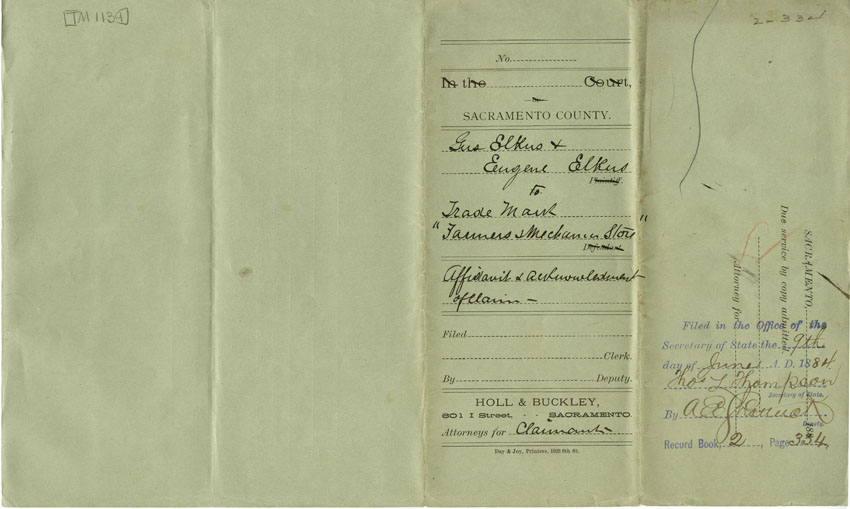 TM 1139
2-334
No.
In the Court,
SACRAMENTO COUNTY.
Gus Elkus &
Eugene Elkus
Plaintiff.
to
Trade Mark
"Farmers & Mechanics Store"
Defendant.
Affidavit & acknowledgment
of Claim -
Filed
Clerk.
By Deputy.
HOLL & BUCKLEY,
601 I Street, - - SACRAMENTO.
Attorneys for Claimants
Day & Joy, Printers, 1023 8th St.
SACRAMENTO,
Due service by copy admitted.
Attorney for
188
Filed in the Office of the
Secretary of State the 9th
day of June A. D. 1884
Thos L Thompson
Secretary of State.
By
Deputy.
Record Book, 2, Page 334,